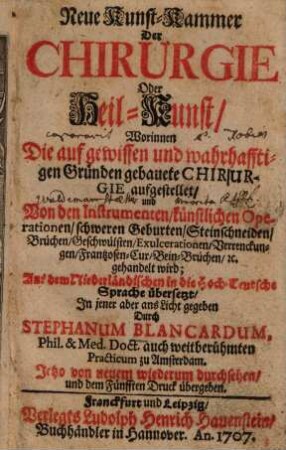 Neue Kunst-Kammer
Der
CHIRURGIE
Oder
Heil-Kunst/
Worinnen
Die auf gewissen und wahrhaffti-
gen Gründen gebauete CHIRUR-
GIE aufgestellet/
und
Von den Instrumenten/künstlichen Ope-
rationen/schweren Geburten/Steinschneiden/
Brüchen/Geschwülsten/Exulcerationen/Verrenckun-
gen/Frantzosen-Cur/Bein-Brüchen/ꝛc.
gehandelt wird;
Aus dem Niederländischen in die Hoch-Teutsche
Sprache übersetzt/
In jener aber ans Licht gegeben
Durch
STEPHANUM BLANCARDUM,
Phil. & Med. Doct. auch weitberühmten
Practicum zu Amsterdam.
Itzo von neuem wiederum durchsehen/
und dem Fünfften Druck übergeben.
Franckfurt und Leipzig/
Verlegts Ludolph Henrich Hauenstein/
Buchhändler in Hannover. An. 1707.